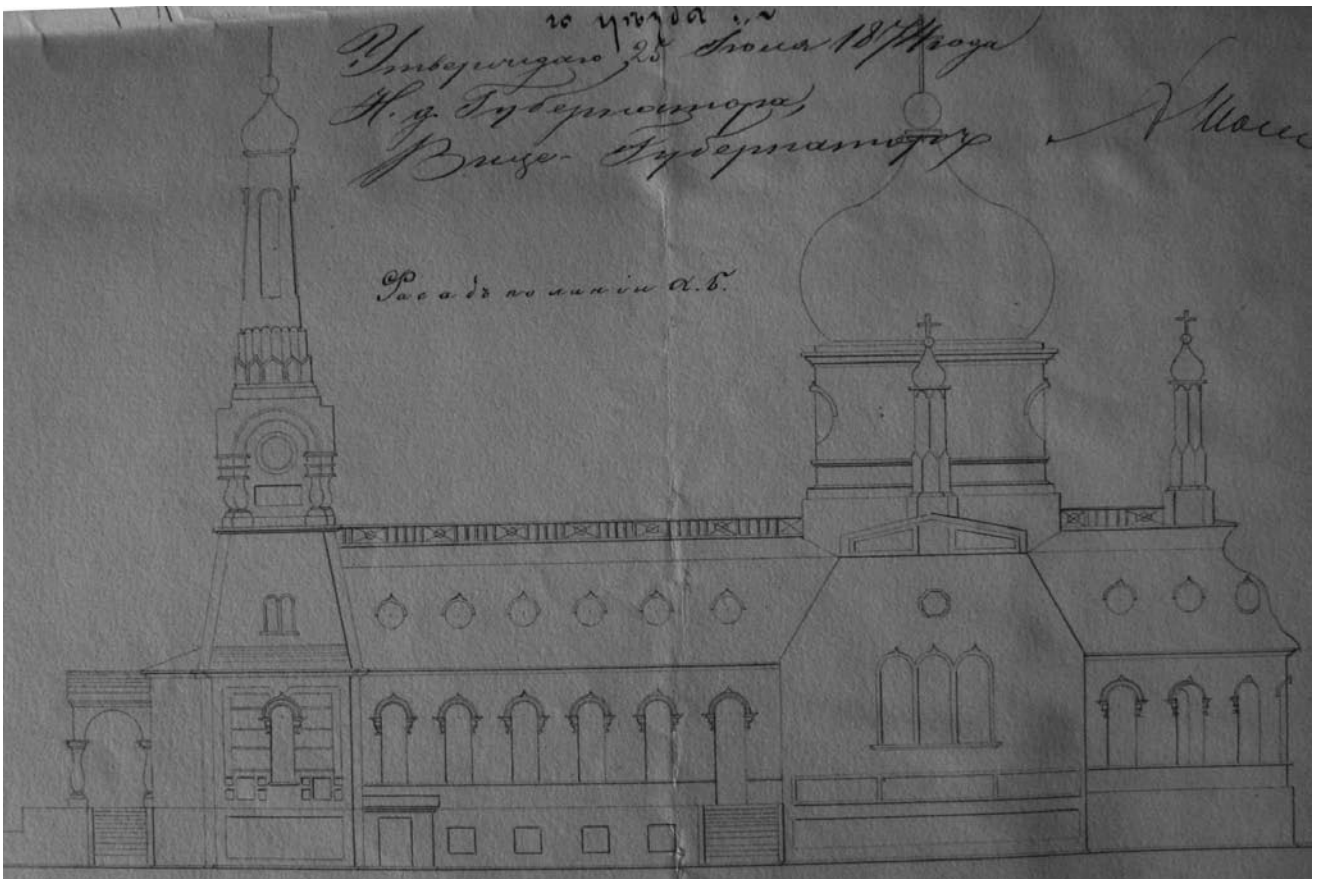 го уѣзда
Утверждаю 25 Июля 1874 года
И. д. Губернатора,
Вице-Губернаторъ
Фасадъ по линіи а. б.